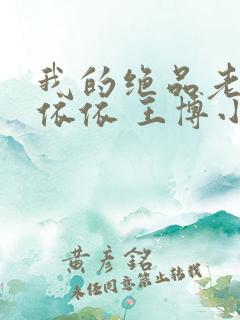 我的绝品老
依依 王博小
黄彦铭
未经同意禁止转载